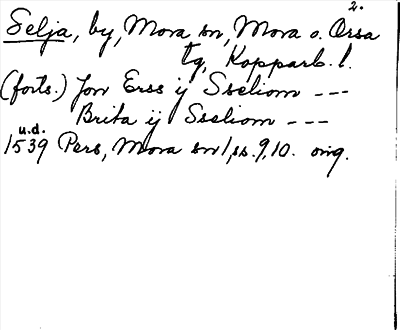 2.
Selja, by, Mora sn, Mora o. Orsa
tg, Kopparb. l.
(forts.) Jon Erss ij Sseliom ---
Brita ij Sseliom ---
u.d.
1539 Pers, Mora sn 1, ss. 9, 10. orig.